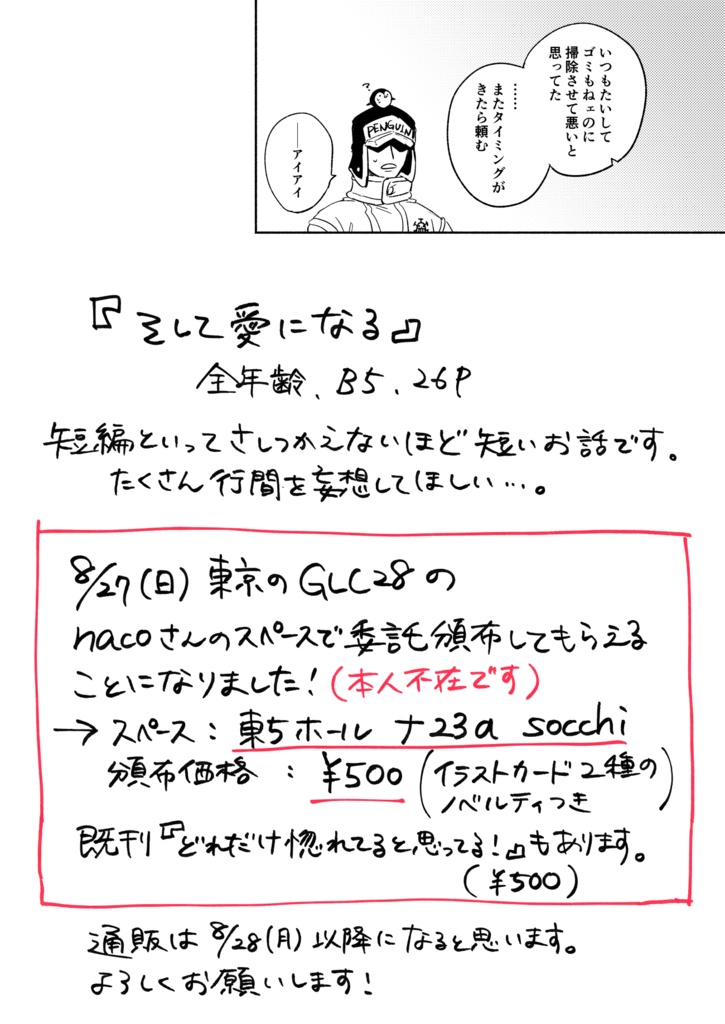 いつもたいして
ゴミもねェのに
掃除させて悪いと
思ってた
……
またタイミングが
きたら頼む
?
PENGUIN
──アイアイ
『そして愛になる』
全年齢、B5、26P
短編といってさしつかえないほど短いお話です。
たくさん行間を妄想してほしい…。
8/27(日)東京のGLC28の
nacoさんのスペースで委託頒布してもらえる
ことになりました!(本人不在です)
→スペース:東5ホール ナ23a socchi
頒布価格:¥500(イラストカード2種の
ノベルティつき)
既刊『どれだけ惚れてると思ってる!』もあります。
(¥500)
通販は8/28(月)以降になると思います。
よろしくお願いします!